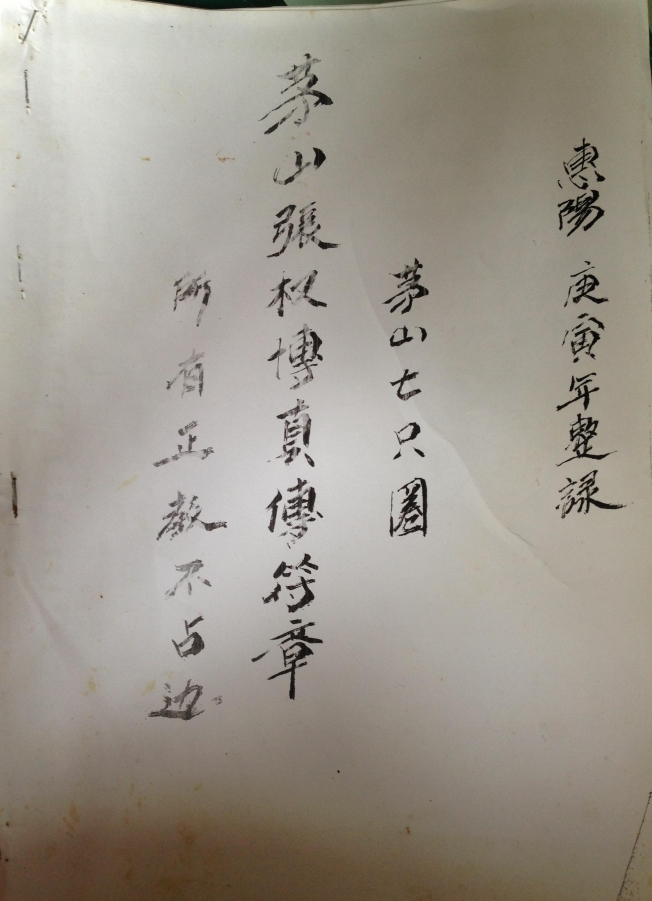 惠陽 庚寅年整録
茅山七只圈
茅山張权博真傳符章
所有正教不占边